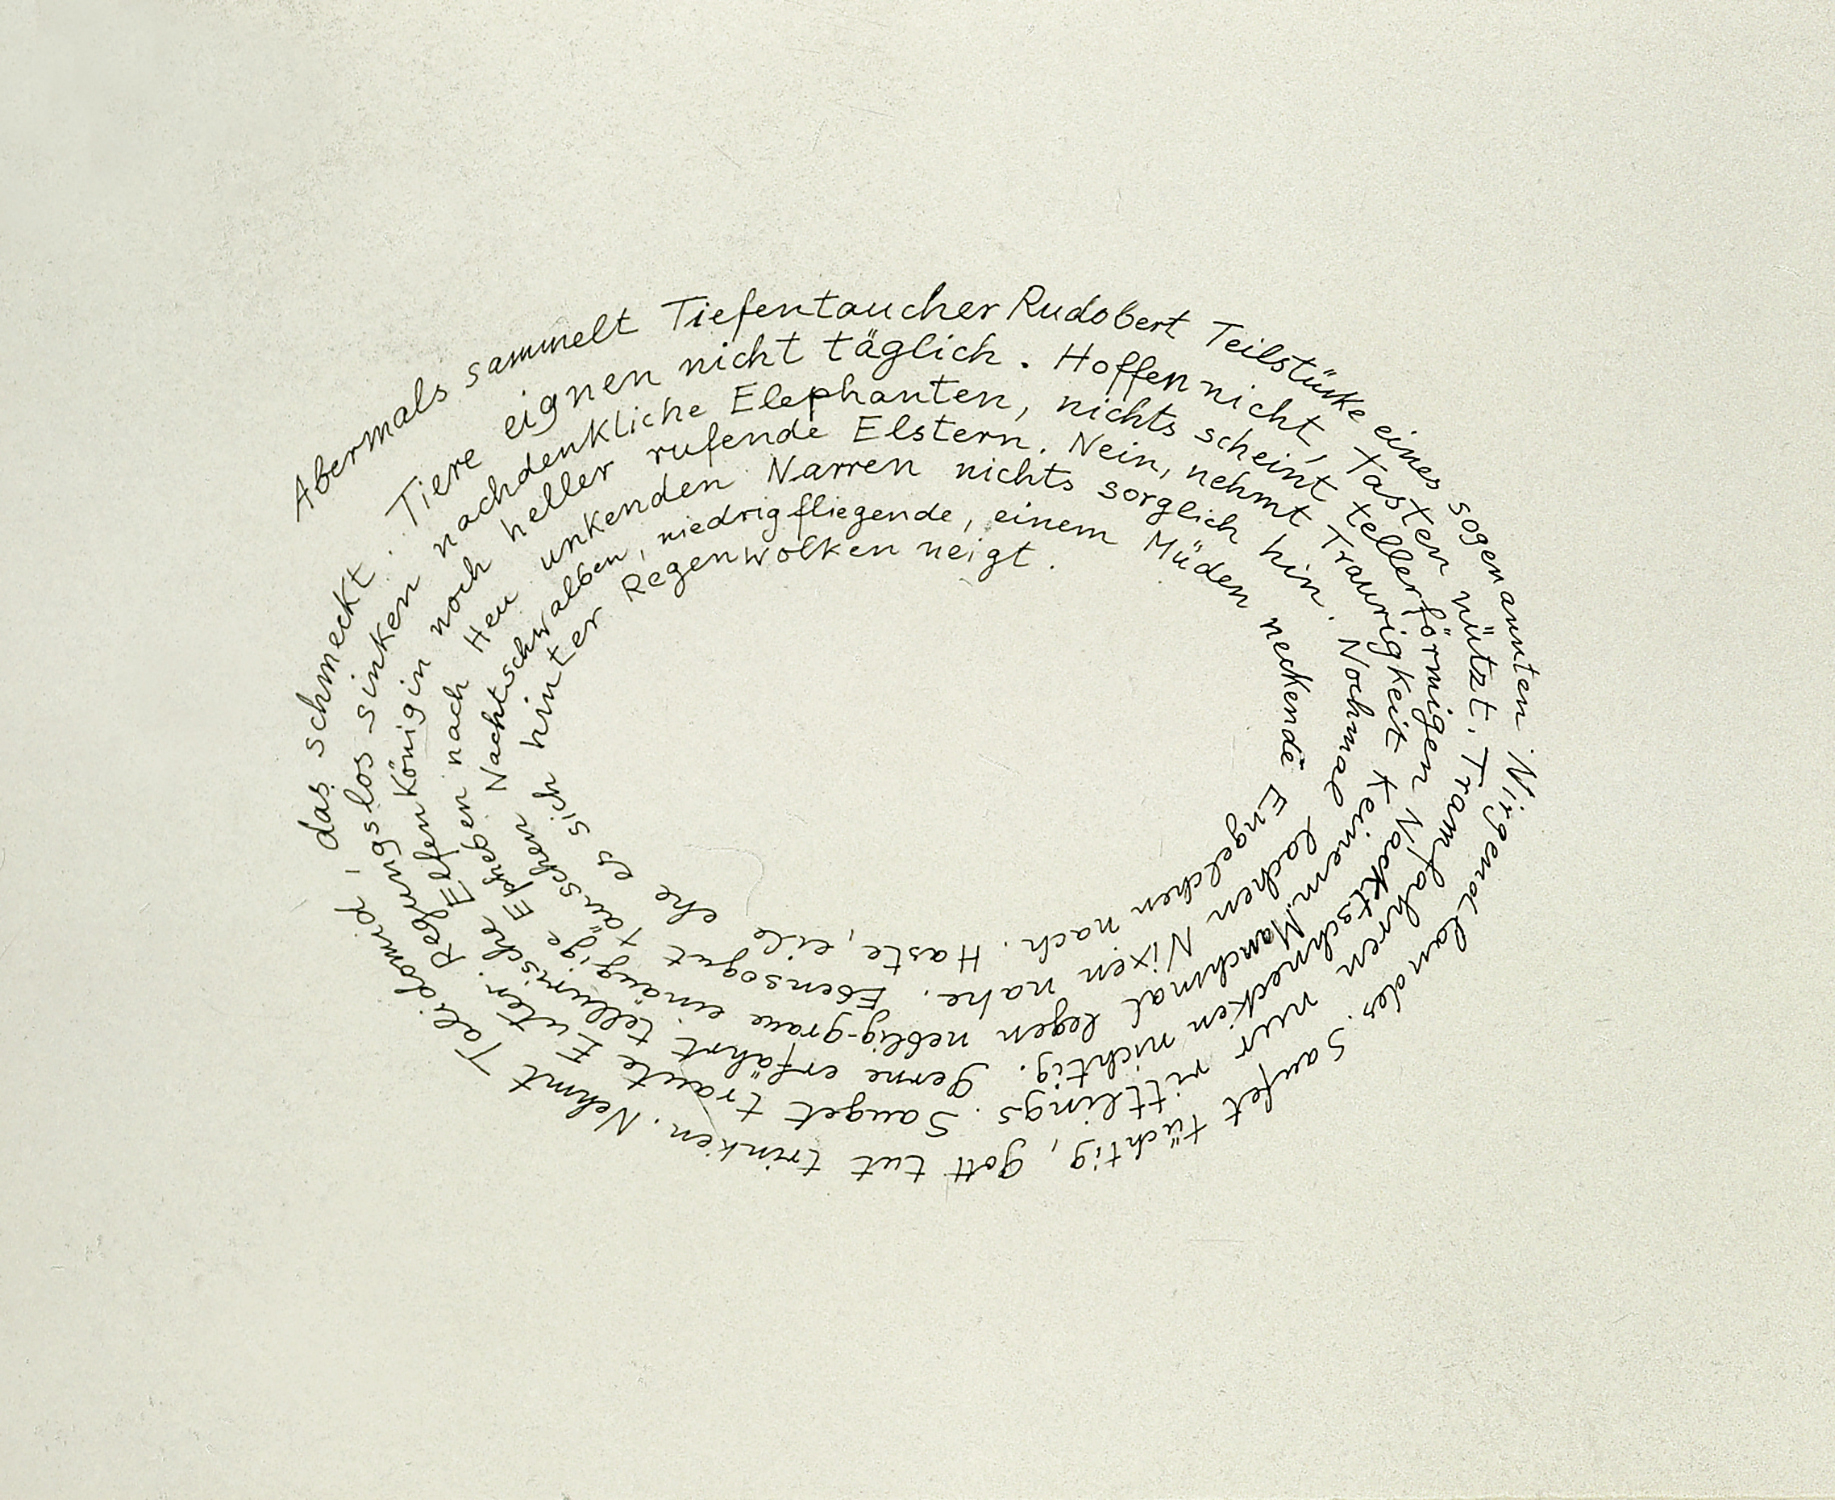 Abermals sammelt Tiefentaucher Rudobert Teilstücke eines sogenannten Nirgendlandes. Saufet tüchtig, gott tut trinken. Nehmt Talidomid, das schmeckt.
Tiere eignen nicht täglich. Hoffen nicht, Tasten nützt. Tramfahren nur rittlings. Sauget traute Euter. Regungslos sinken
nachdenkliche Elephanten, nichts scheint tellerförmigen Nacktschnecken nichtig. Gerne erfährt tellurische Elfenkönigin noch
heller rufende Elstern. Nein, nehmt Traurigkeit keinem. Manchmal legen neblig-graue einäugige Epheben nach Heu
unkenden Narren nichts sorglich hin. Nochmal lachen Nixen nahe. Ebensogut täuschen Nachtschwalben,
niedrigfliegende, einem Müden neckende Engelchen nach. Haste, eile ehe es sich hinter
Regenwolken neigt.